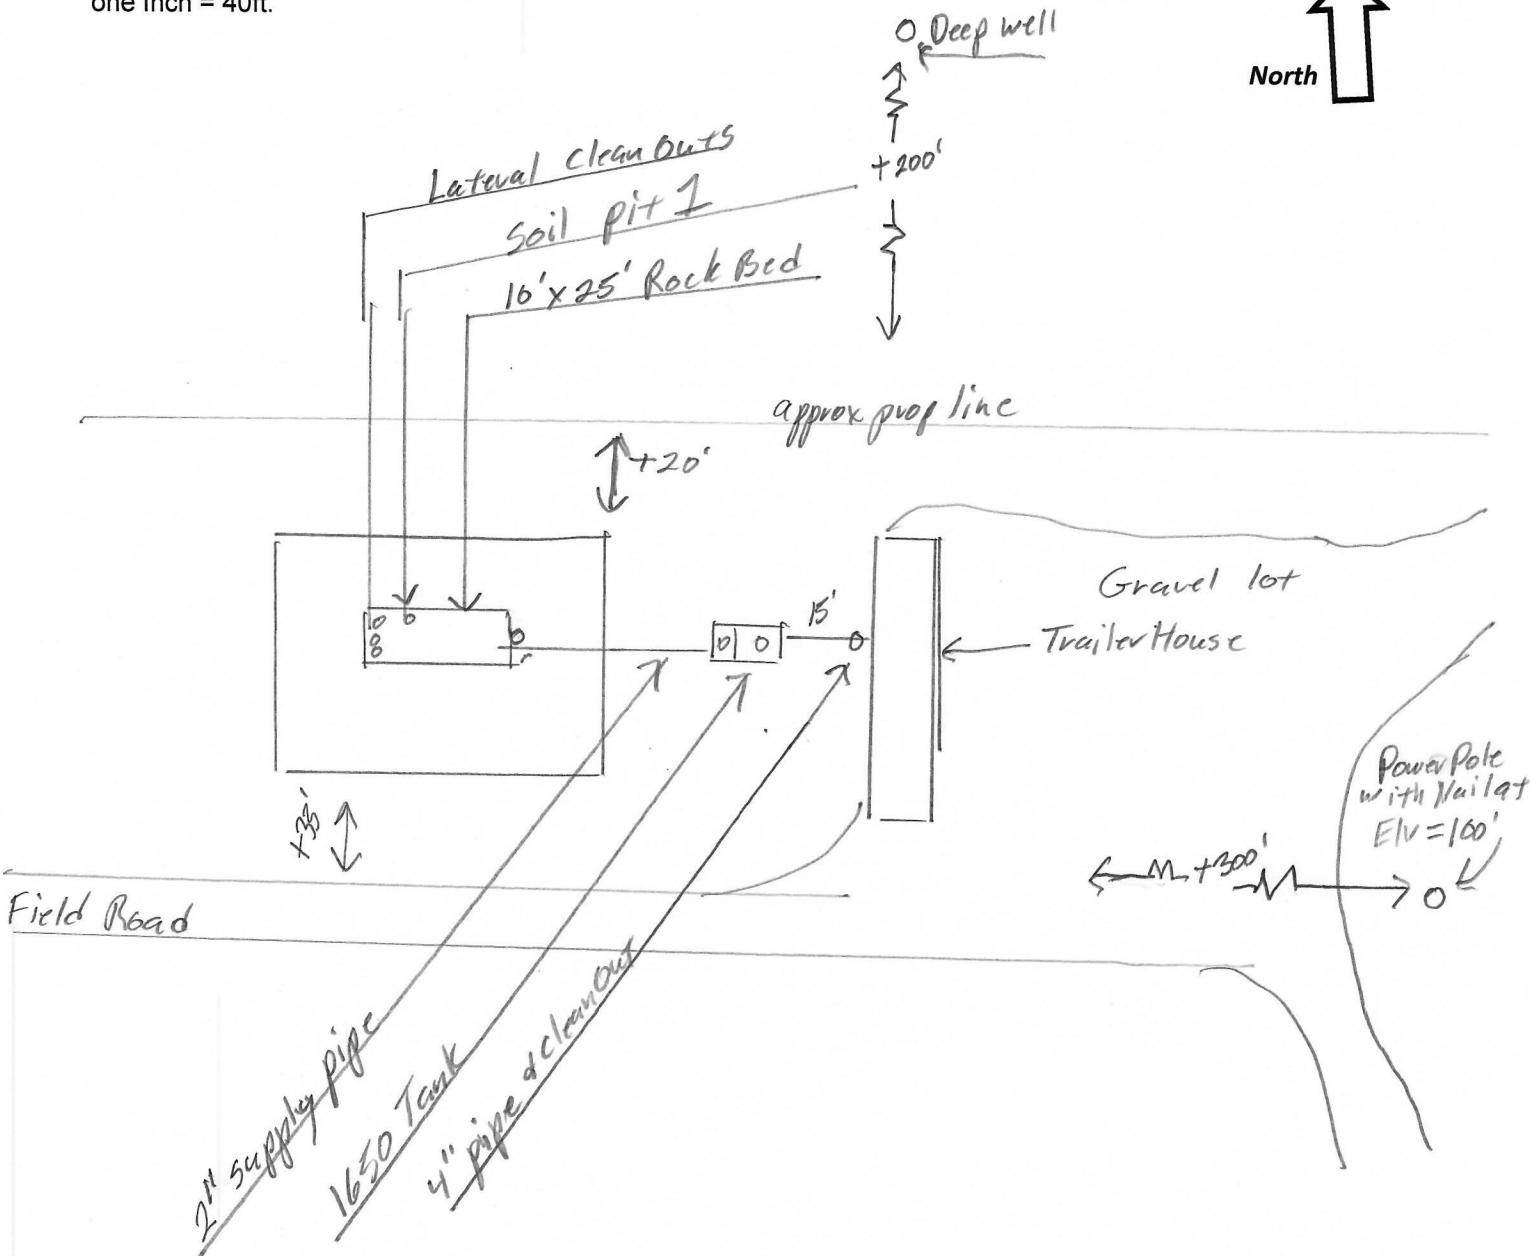 one inch = 40ft.
Deep well
North
+200'
Lateral Clean Outs
Soil pit 1
10'x25' Rock Bed
approx prop line
+20'
Gravel lot
15'
Trailer House
Power Pole
with Nail at
Elv=100'
+300'
Field Road
2" supply pipe
1650 Tank
4" pipe & cleanout